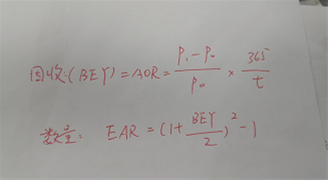 固收:(BEY)=AOR=\frac{P_1-P_0}{P_0}×\frac{365}{t}
数量: EAR=(1+\frac{BEY}{2})^2-1